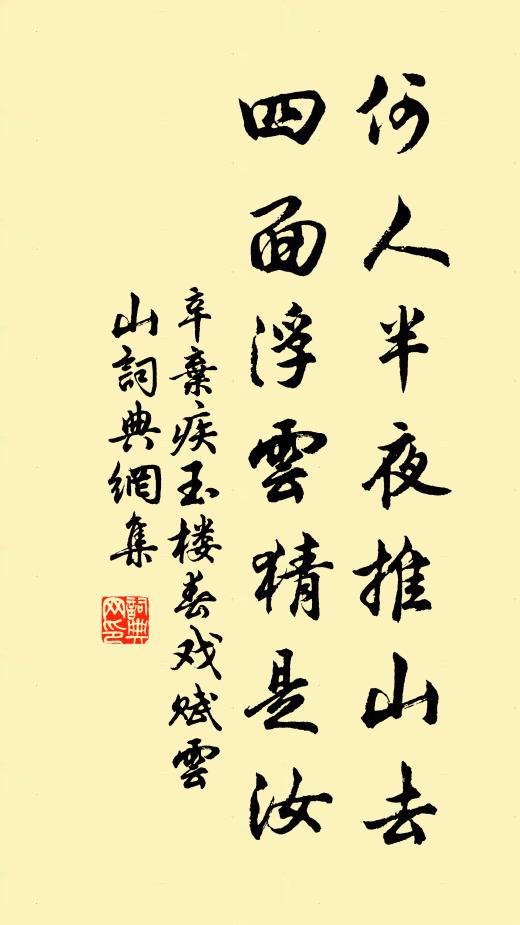 何人半夜推山去
四面浮雲猜是汝
辛棄疾玉楼春戏赋雲
山詞典網集
詞典网印